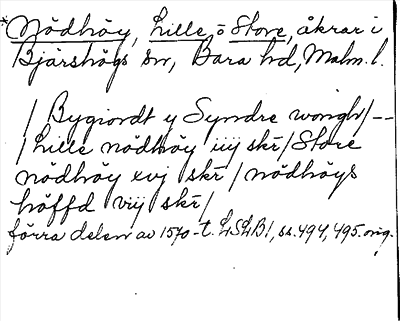 *Nödhöy, Lille o Store, åkrar i
Bjärshögs sn, Bara hd, Malm. l.
/ Bygiordt y Syndre wongh/--
/ Lille nödhöy iiij skr/ Store
nödhöy xvj skr / nödhöys
höffd viij skr/
förra delen av 1570-t. LSLB1, ss. 494, 495. orig.